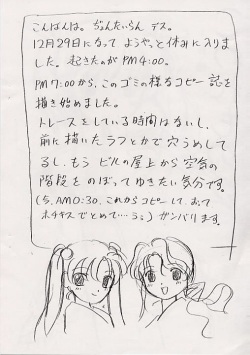 こんばんは。ぢょんたいらん デス。
12月29日になって ようやっと休みに入りま
した。起きたのが PM4:00。
PM7:00から、このゴミの様なコピー誌を
描き始めました。
トレースをしている時間はないし、
前に描いたラフとかで穴うめして
るし、もう ビルの屋上から空気の
階段を のぼってゆきたい気分です。
(5、AM0:30、これからコピーして、おって
ホチキスでとめて…う;) ガンバリます。